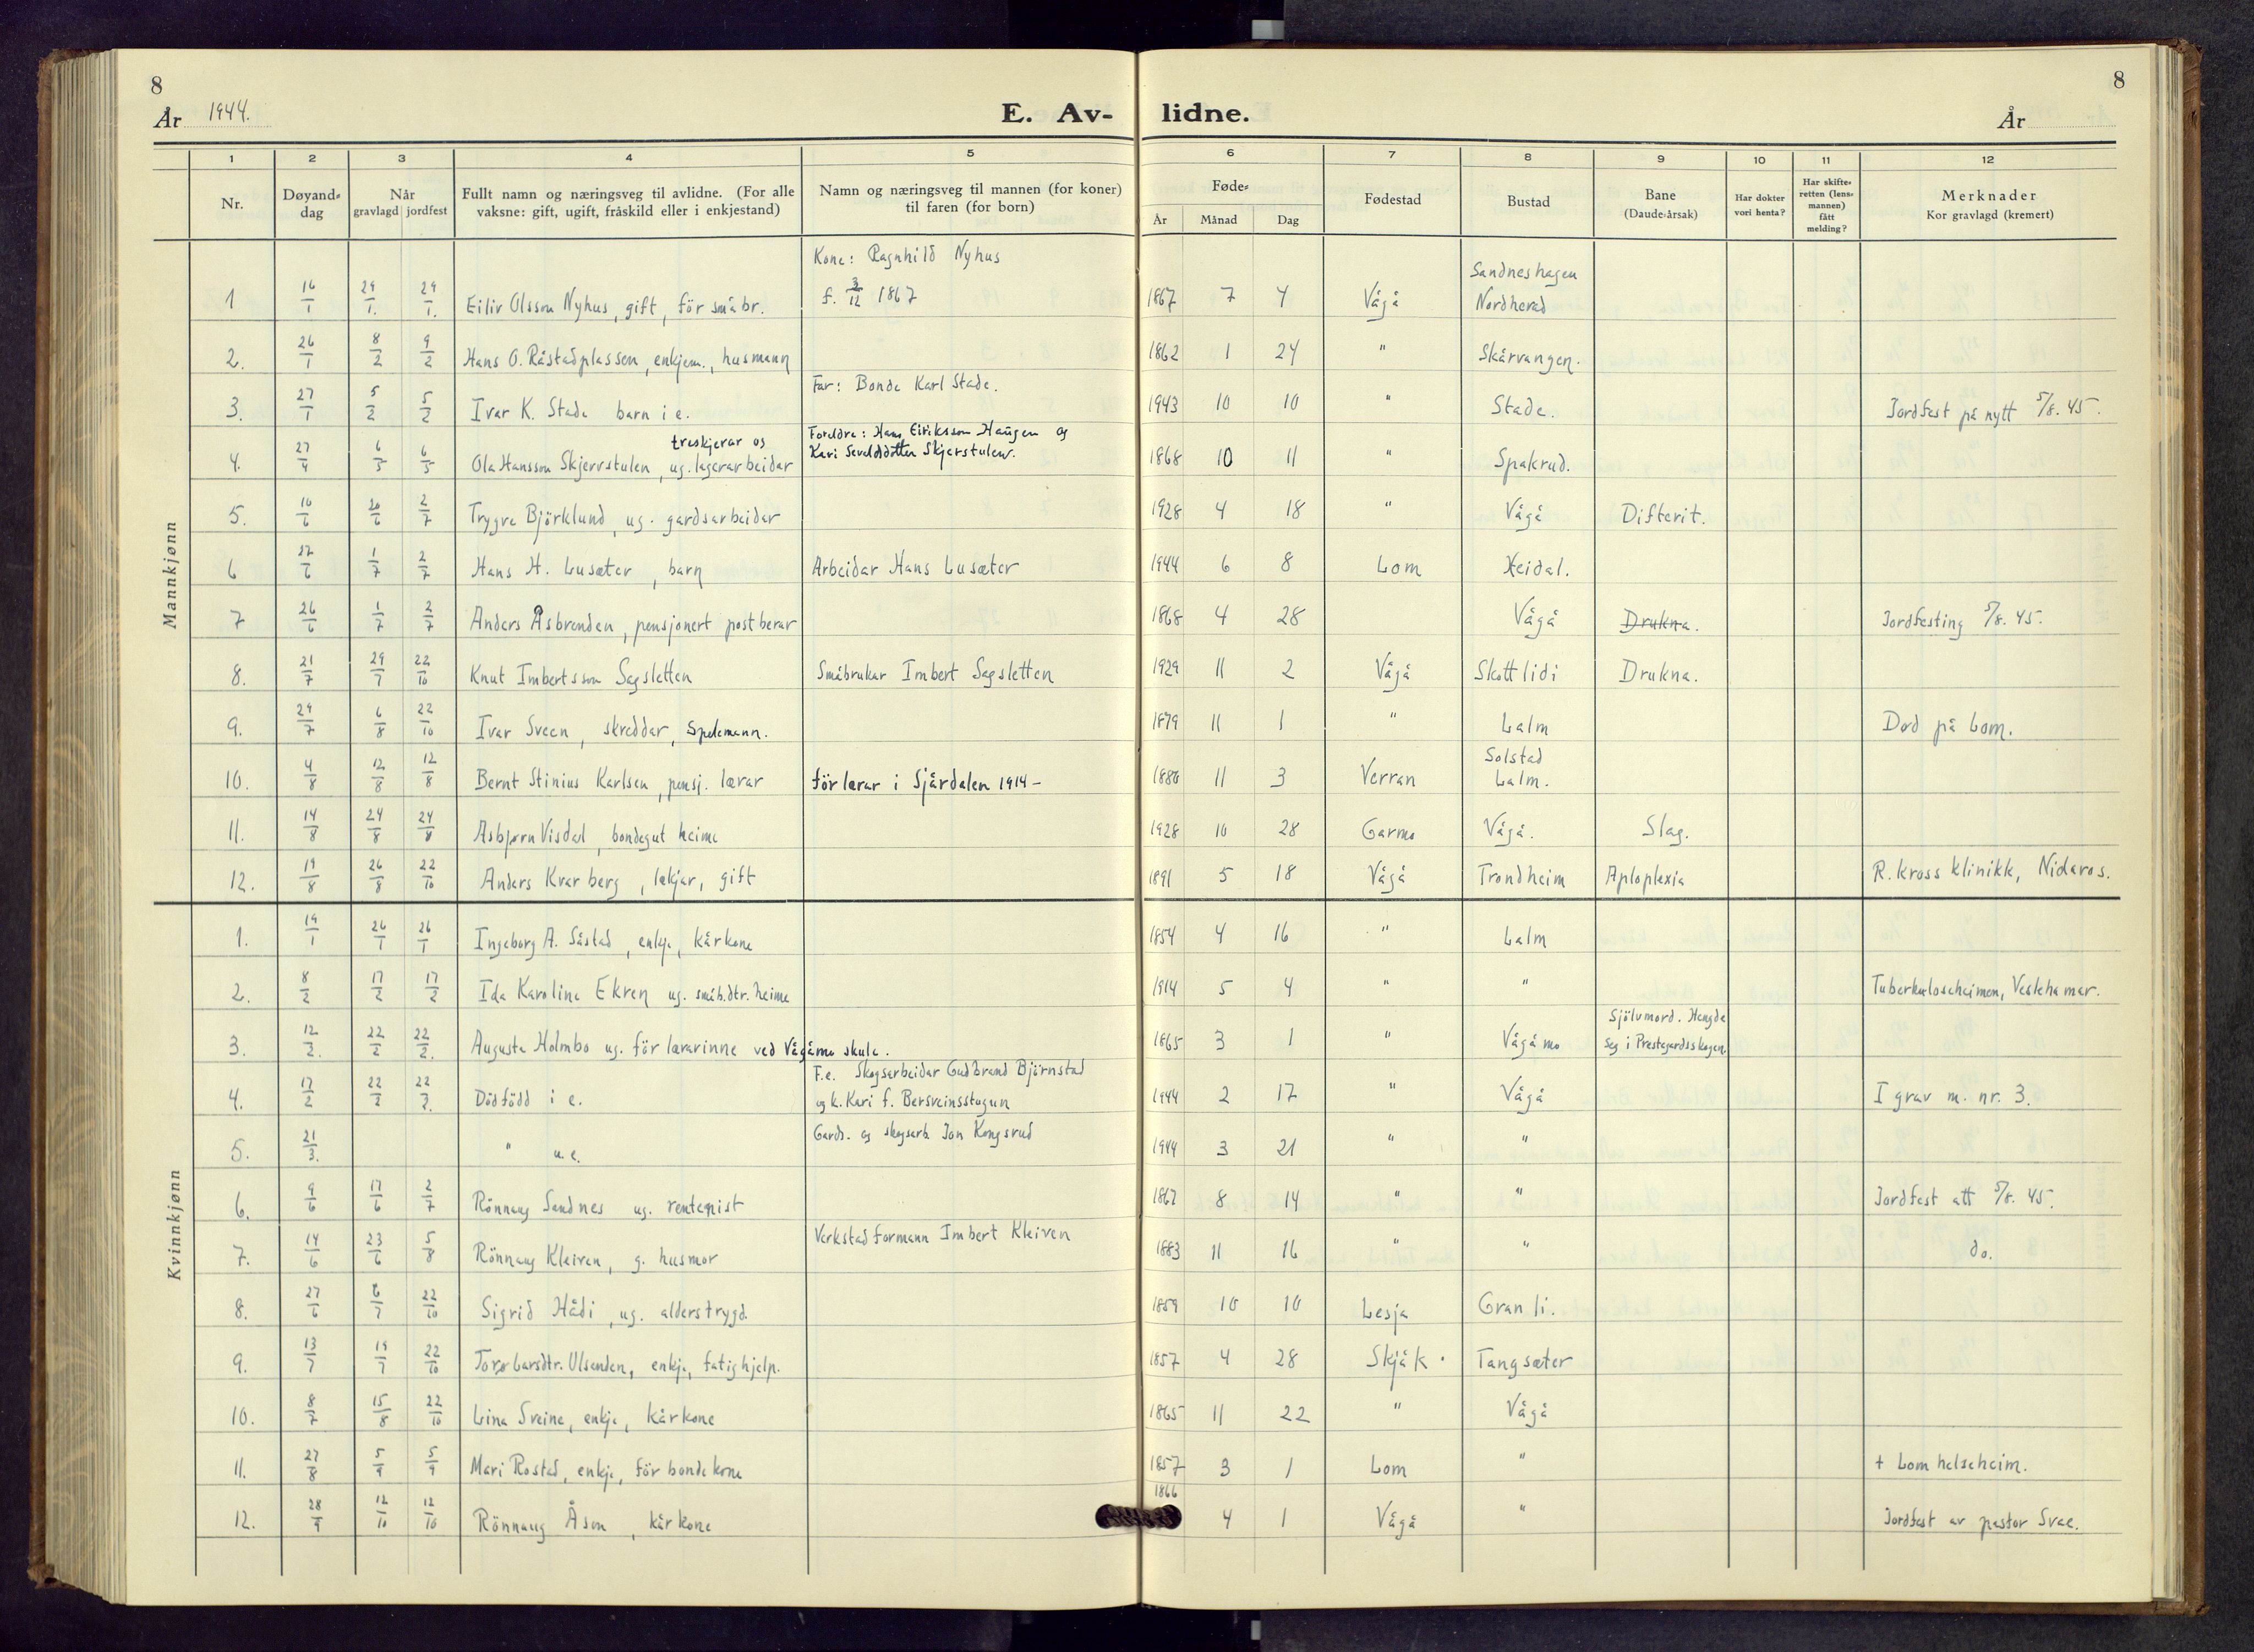 8
År 1944.
E. Av-
1 2 3 4 5
Nr. Døyand-dag Når gravlagd jordfest Fullt namn og næringsveg til avlidne. (For alle vaksne: gift, ugift, fråskild eller i enkjestand) Namn og næringsveg til mannen (for koner) til faren (for born)
lidne.
8
År
6 7 8 9 10 11 12
Føde- År Månad Dag Fødestad Bustad Bane (Daude-årsak) Har dokter vori henta? Har skifte-retten (lens-mannen) fått melding? Merknader Kor gravlagd (kremert)
Mannkjønn
Kone: Ragnhild Nyhus Sandneshagen
1 16/1 29/1. 29/1. Eiliv Olsson Nyhus, gift, för småbr. f. 3/12 1867 1867 7 4 Vågå Nordherad
2. 26/1 8/2 9/2 Hans O. Råstadplassen, enkjem., husmann 1862 1 24 " Skårvangen.
Far: Bonde Karl Stade.
3. 27/1 5/2 5/2 Ivar K. Stade barn i e. 1943 10 10 " Stade. Jordfest på nytt 5/8. 45.
treskjerar og Foreldre: Hans Eiriksson Haugen og
4. 27/4 6/5 6/5 Ola Hansson Skjervstulen, ug. lagerarbeidar Kari 1868 10 11 " Spakrud.
5. 16/6 20/6 2/7 Trygve Björklund, ug. gardsarbeidar 1928 4 18 " Vågå Difterit.
6 22/6 1/7 2/7 Hans H. Lusæter, barn Arbeidar Hans Lusæter 1944 6 8 Lom Heidal.
7 26/6 1/7 2/7 Anders Åsbrenden, pensjonert postberar 1868 4 28 Vågå Drukna. Jordfesting 5/8. 45.
8. 21/7 29/7 22/10 Knut Imbertsson Sagsletten Småbrukar Imbert Sagsletten 1929 11 2 Vågå Skottlidi Drukna.
9. 29/7 6/8 22/10 Ivar Sveen, skreddar, Spelemann. 1879 11 1 " Lalm Död på Lom.
Solstad
10. 4/8 12/8 12/8 Bernt Stinius Karlsen, pensj. lærar för lærar i Sjårdalen 1914- 1880 11 3 Verran Lalm.
11. 14/8 24/8 24/8 Asbjørn Visdal, bondegut heime 1928 10 28 Garmo Vågå. Slag.
12. 19/8 26/8 22/10 Anders Kvarberg, lækjar, gift 1891 5 18 Vågå Trondheim Aploplexia R. kross klinikk, Nidaros.
Kvinnkjønn
1. 19/1 26/1 26/1 Ingeborg A. Såstad, enkje, kårkone 1854 4 16 " Lalm
2. 8/2 17/2 17/2 Ida Karoline Ekren ug. småb.dtr. heime 1914 5 4 " " Tuberkuloseheimen, Veslehamar.
Sjölvmord. Hengde
3. 12/2. 22/2 22/2. Augusta Holmbo ug. för lærarinne ved Vågåmo skule. 1865 3 1 " Vågåmo seg i Prestegardsskogen.
F.e. Skogsarbeidar Gudbrand Björnstad
4. 17/2 22/2 22/2. Dödfödd i e. og k. Kari f. Bersveinsstogun 1944 2 17 " Vågå I grav m. nr. 3.
Gards. og skogsarb. Jon Kongsrud
5. 21/3. " u.e. 1944 3 21 " "
6. 9/6 17/6 2/7 Rönnaug Sandnes ug. rentenist 1867 8 14 " " Jordfest att 5/8. 45.
Verkstadformann Imbert Kleiven
7. 14/6 23/6 5/8 Rönnaug Kleiven, g. husmor 1883 11 16 " " do.
8. 27/6 6/7 22/10 Sigrid Hådi, ug. alderstrygd. 1859 10 10 Lesja Granli.
9. 13/7 19/7 22/10 Tore Larsdtr. Ulsanden, enkje, fatighjelp. 1857 4 28 Skjåk. Tangsæter
10. 8/7 15/8 22/10 Lina Sveine, enkje, kårkone 1865 11 22 " Vågå
11. 27/8 5/9 5/9 Mari Rostad, enkje, för bondekone 1857 3 1 Lom " + Lom helseheim.
1866
12. 28/9 12/10 12/10 Rönnaug Åsen, kårkone 4 1 Vågå " Jordfest av pastor Svae.